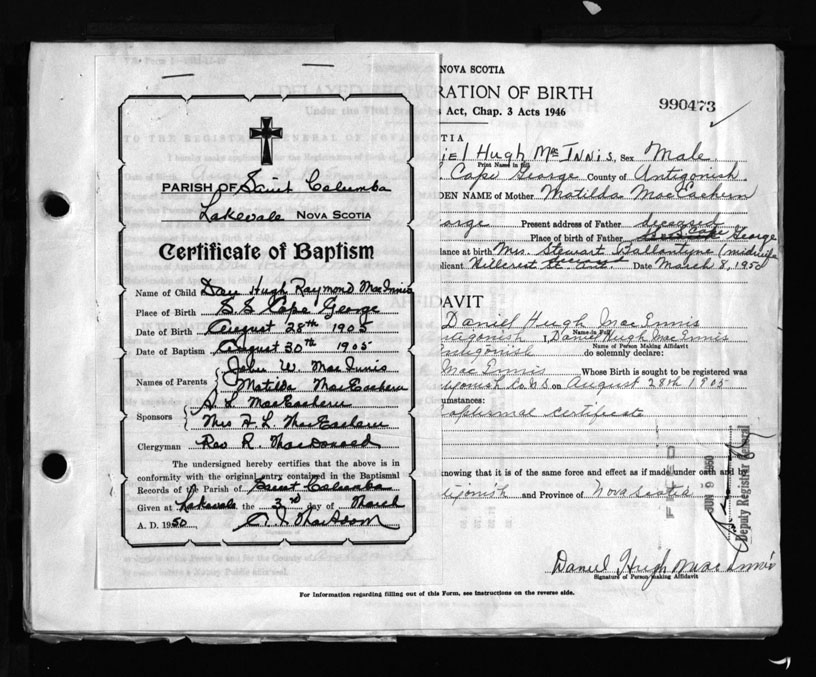 PARISH OF Saint Columba
Lakevale NOVA SCOTIA
Certificate of Baptism
Name of Child Dan Hugh Raymond MacInnis
Place of Birth S S Cape George
Date of Birth August 28th 1905
Date of Baptism August 30th 1905
Names of Parents John W. MacInnis
Matilda MacEachern
Sponsors A L MacEachern
Mrs A. L. MacEachern
Clergyman Rev R. MacDonald
The undersigned hereby certifies that the above is in
conformity with the original entry contained in the Baptismal
Records of the Parish of Saint Columba
Given at Lakevale the 3rd day of March
A. D. 1950
NOVA SCOTIA
RATION OF BIRTH
Act, Chap. 3 Acts 1946
990473
TIA
iel Hugh MacInnis, Sex Male
Print Name in full
Cape George County of Antigonish
DEN NAME of Mother Matilda MacEachern
orge Present address of Father deceased
Place of birth of Father Cape George
dance at birth Mrs. Stewart Ballantyne (midwife
plicant Hillcrest St. Ant. Date March 8, 1950
DAVIT
Daniel Hugh MacInnis
Name in Full
tigonish I, Daniel Hugh MacInnis
Name of Person Making Affidavit
ntigonish do solemnly declare:
MacInnis Whose Birth is sought to be registered was
tigonish Co. N.S. on August 28th 1905
cumstances:
aptismal certificate
knowing that it is of the same force and effect as if made under oath and by
tigonish and Province of Nova Scotia
JUN 9 1950
Deputy Registrar General
Daniel Hugh MacInnis
Signature of Person making Affidavit
For Information regarding filling out of this Form, see Instructions on the reverse side.